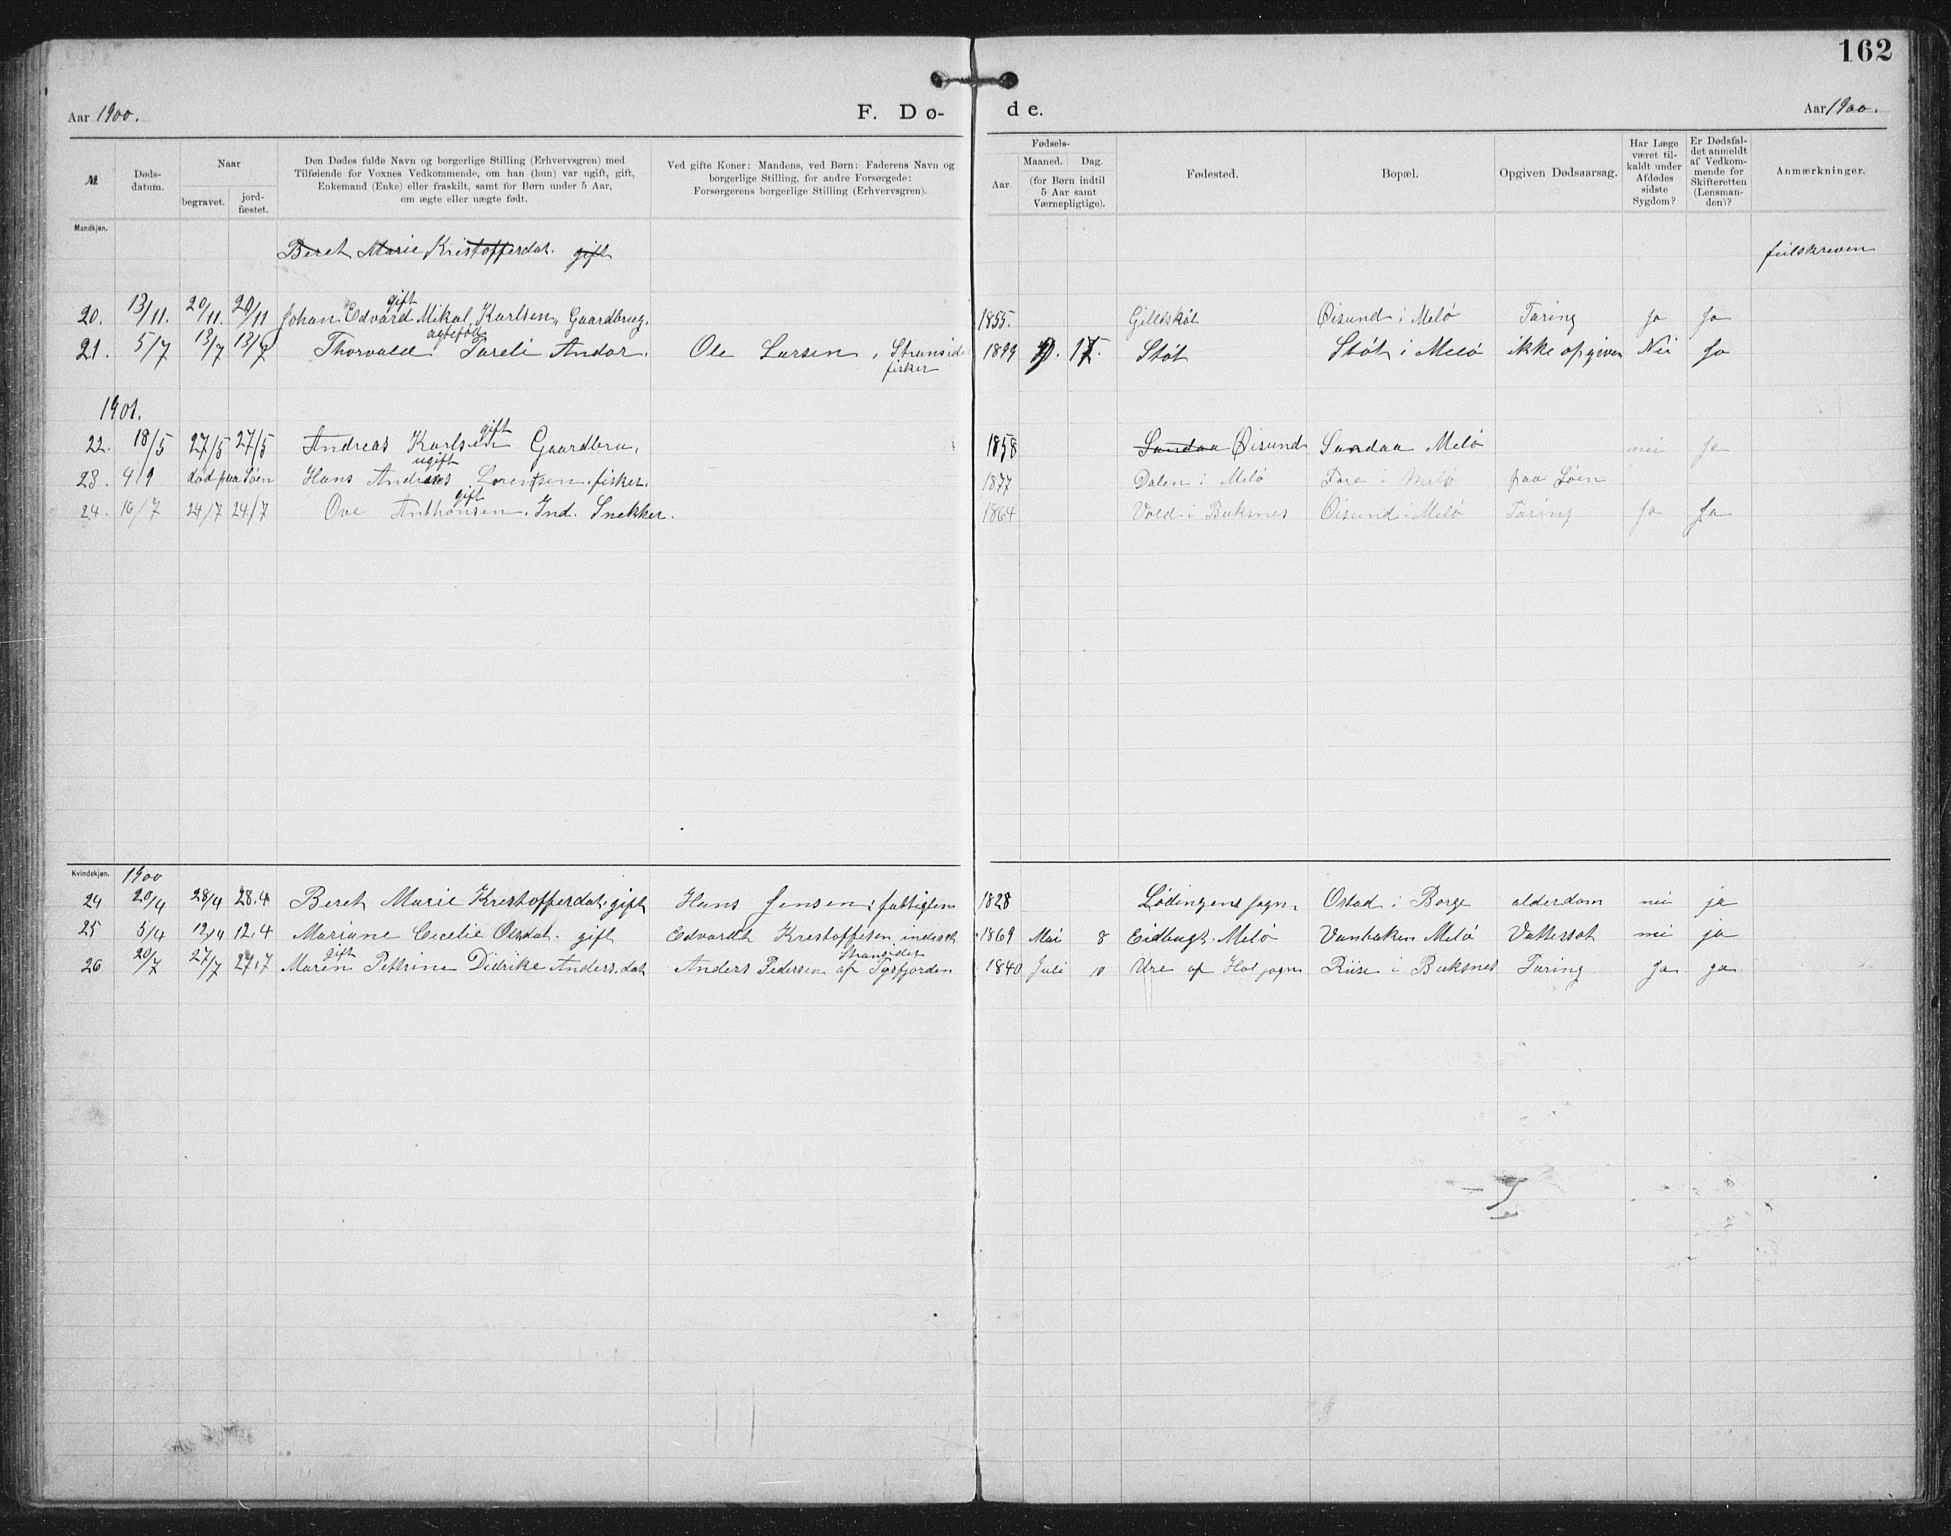 162
Aar 1900. F. Dø- de. Aar 1900.
№ Dødsdatum. Naar begravet. jordfæstet. Den Dødes fulde Navn og borgerlige Stilling (Erhvervsgren) med Tilføiende for Voxnes Vedkommende, om han (hun) var ugift, gift, Enkemand (Enke) eller fraskilt, samt for Børn under 5 Aar, om ægte eller uægte født. Ved gifte Koner: Mandens, ved Børn: Faderens Navn og borgerlige Stilling, for andre Forsørgede: Forsørgerens borgerlige Stilling (Erhvervsgren). Fødsels- Aar. Maaned. Dag. (for Børn indtil 5 Aar samt Værnepligtige). Fødested. Bopæl. Opgiven Dødsaarsag. Har Læge været tilkaldt under Afdødes sidste Sygdom? Er Dødsfaldet anmeldt af Vedkommende for Skifteretten (Lensmanden)? Anmærkninger.
Mandkjøn.
Beret Marie Kristofferdat. gift feilskreven
gift
20. 13/11. 20/11. 20/11 Johan Edvard Mikal Karlsen, Gaardbrug. 1855. Gildskøl Øisund i Melø Tæring Ja Ja
ægtefød
21. 5/7 13/7 13/7 Thorvald Andor. Ole Larsen, 1899 Støt Støt i Melø ikke opgiven Nei Ja
fisker
1901.
gift
22. 18/5 27/5 27/5 Andreas Karlsen Gaardbru. 1858 Sandaa Øisund Sandaa Melø nei Ja
ugift
23. 4/9 død paa Søen Hans Andreas Lorentsen fisker. 1877 Dalen i Melø Fore i Melø paa Søen
gift
24. 16/7 24/7 24/7 Ove Anthonsen. Ind. Snekker. 1864 Vold i Buksnes Øisund i Melø Tæring Ja Ja
Kvindekjøn. 1900
24 20/4 28/4 28.4 Beret Marie Kristofferdat. gift Hans Jensen; fattiglem 1828 Lødingens sogn Ostad i Borge alderdom nei ja
25 5/4 12/4 12.4 Mariane Cecelie Olsdat. gift Edvardt Kristoffersen inderst 1869 Mai 8 Melø Melø Vattersot nei ja
gift Strandsider
26 20/7 27/7 27.7 Maren Pettrine Didrike Anders.dat Anders Pedersen af Tysfjorden 1840 Juli Ure af Hol sogn Riise i Buksnes Tæring Ja ja